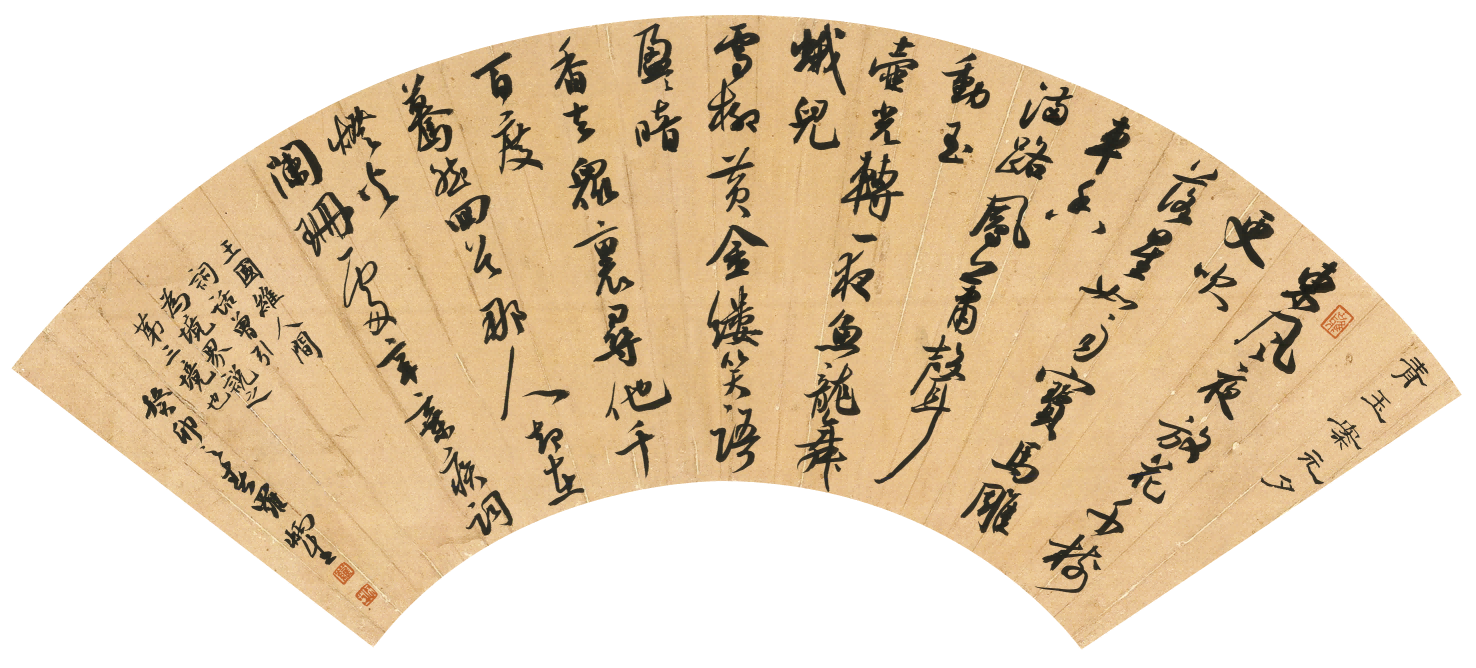 青玉案元夕
東風夜放花千樹
更吹
落星如雨寶馬雕
車香
滿路鳳簫聲
動玉
壺光轉一夜魚龍舞
蛾兒
雪柳黃金縷笑語
盈盈暗
香去眾裏尋他千
百度
驀然回首那人却在
燈火
闌珊處辛棄疾詞
王國維人間
詞話曾引之
為境界說也
第三境
癸卯